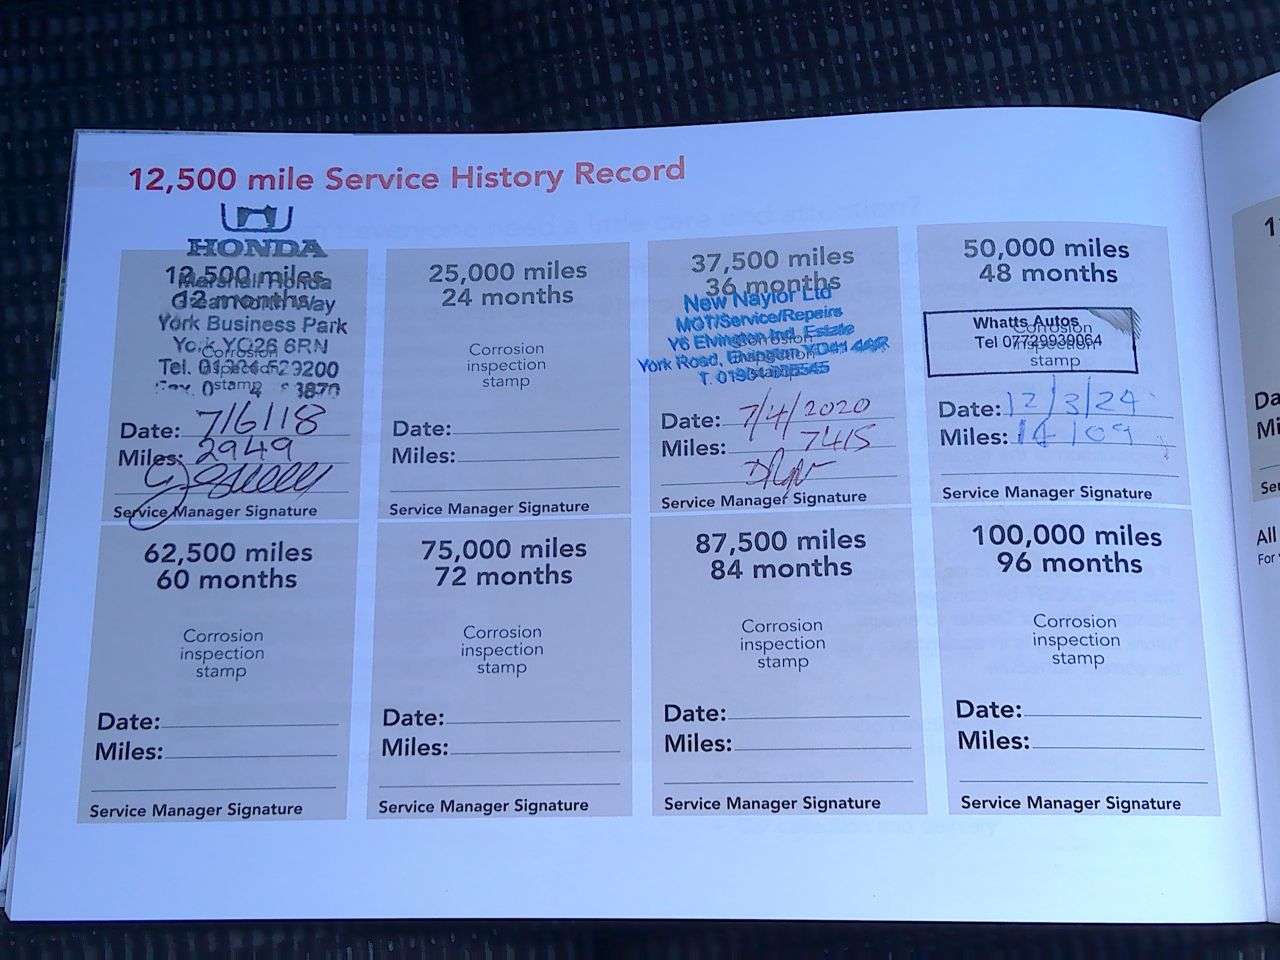 12,500 mile Service History Record
HONDA
12,500 miles
Marshall Honda
12 months
Great North Way
York Business Park
York YO26 6RN
Corrosion
inspection
Tel. 01904 529200
stamp
Date: 7/6/18
Miles: 2949
Service Manager Signature
25,000 miles
24 months
Corrosion
inspection
stamp
Date:
Miles:
Service Manager Signature
37,500 miles
36 months
New Naylor Ltd
MOT/Service/Repairs
Y6 Elvington Ind. Estate
York Road, Elvington, YO41 4AR
Corrosion
inspection
stamp
Date: 7/4/2020
Miles: 7415
Service Manager Signature
50,000 miles
48 months
Whatts Autos
Corrosion
Tel 07729939064
inspection
stamp
Date: 12/3/24
Miles: 14109
Service Manager Signature
62,500 miles
60 months
Corrosion
inspection
stamp
Date:
Miles:
Service Manager Signature
75,000 miles
72 months
Corrosion
inspection
stamp
Date:
Miles:
Service Manager Signature
87,500 miles
84 months
Corrosion
inspection
stamp
Date:
Miles:
Service Manager Signature
100,000 miles
96 months
Corrosion
inspection
stamp
Date:
Miles:
Service Manager Signature
All
For